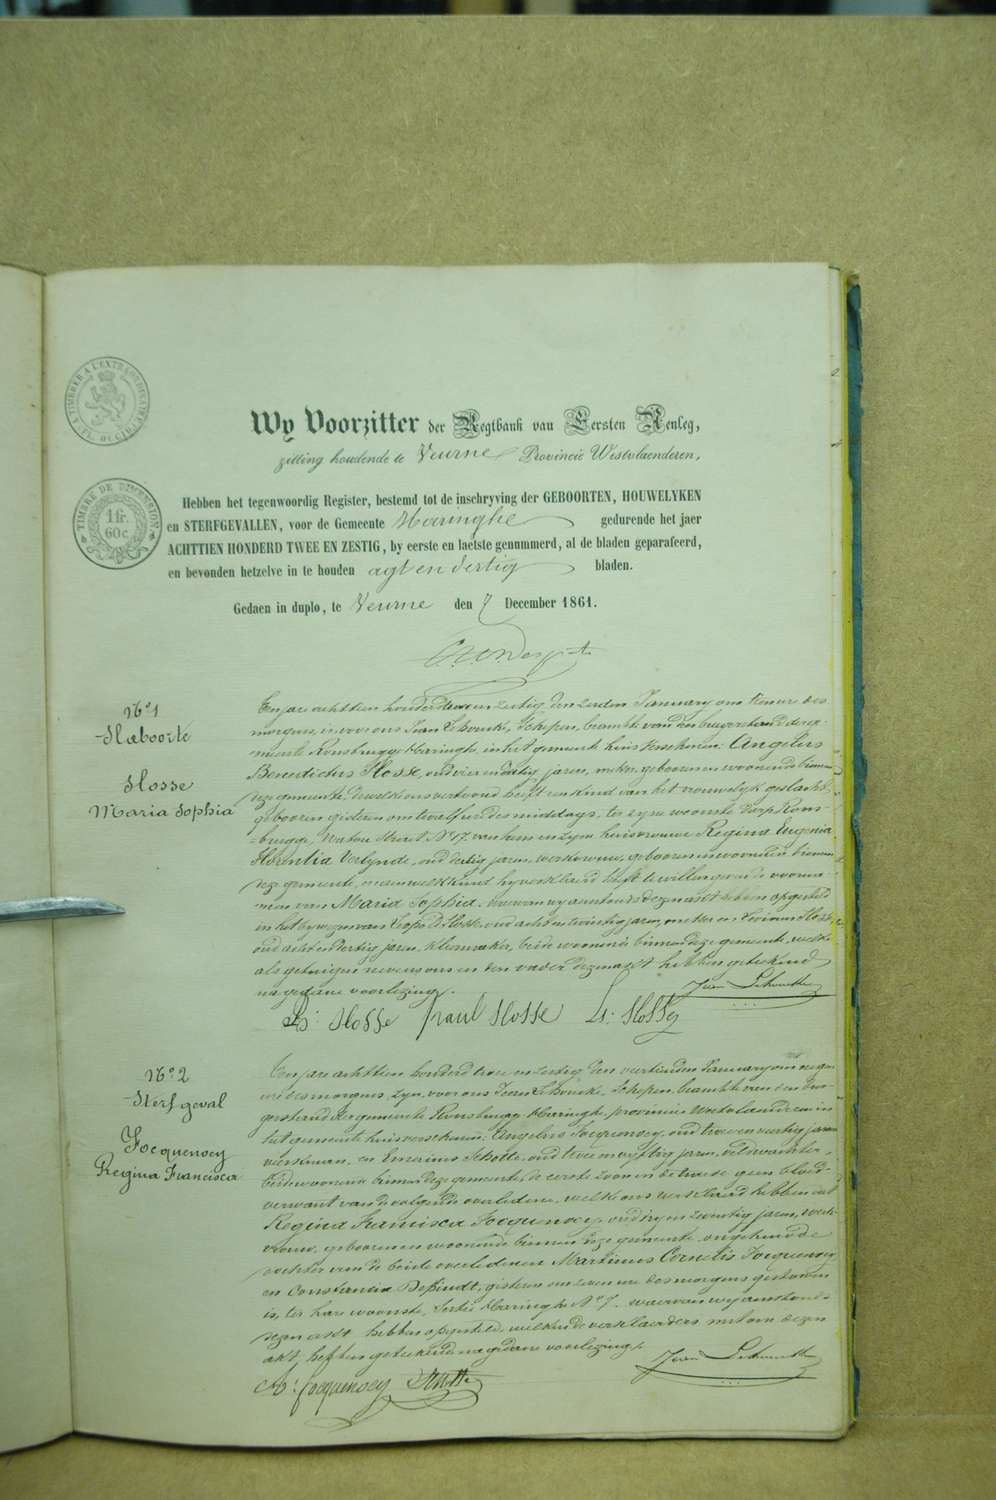 TIMBRE A L'EXTRAORDINAIRE
TIMBRE DE DIMENSION
1 fr.
60 c.
Wy Voorzitter der Regtbank van Eersten Aenleg,
zitting houdende te Veurne Provincie Westvlaenderen,
Hebben het tegenwoordig Register, bestemd tot de inschryving der GEBOORTEN, HOUWELYKEN
en STERFGEVALLEN, voor de Gemeente Haringhe gedurende het jaer
ACHTTIEN HONDERD TWEE EN ZESTIG, by eerste en laetste genummerd, al de bladen geparafeerd,
en bevonden hetzelve in te houden agt en dertig bladen.
Gedaen in duplo, te Veurne den 7 December 1861.
No. 1
Geboorte
Hosse
Maria Sophia
Ten jare achttien honderd twee en zestig, den eersten January om tien ure des
morgens, is voor ons Jean Schoucke, Schepen, beambte van den burgerstand der ge-
meente Rousbrugge Haringhe, in het gemeente huis verschenen: Angelus
Benedictus Hosse, oud vier en dertig jaren, geboren en woonende binnen
deze gemeente, dewelke ons vertoond heeft een kind van het vrouwelyk geslacht,
geboren gisteren om twaelf ure des middags, ter zyne woonste Dorp Rous-
brugge, Watou Straet No. 17, van hem en zyne huisvrouwe Regina Eugenia
Florentia Verlynde, oud dertig jaren, werkvrouw, geboren en woonende binnen
deze gemeente, en aen welk kind hy verklaerd heeft te willen geven de voorna-
men van Maria Sophia, waervan wy aenstonds dezen act hebben opgesteld
in het bywezen van Leopold Hosse, oud acht en twintig jaren, en Hosse
oud acht en dertig jaren, kleermaker, beide woonende binnen deze gemeente, welke
als getuigen nevens ons en den vader dezen act hebben geteekend
na gedane voorlezing.
Hosse Paul Hosse L: Hosse
No. 2
Sterfgeval
Jocquensey
Regina Francisca
Ten jare achttien honderd twee en zestig, den veertienden January om negen
ure des morgens, zyn voor ons Jean Schoucke, Schepen, beambte van den bur-
gerstand der gemeente Rousbrugge Haringhe, provincie Westvlaenderen in
het gemeente huis verschenen: Angelus Jocquensey, oud twee en veertig jaren
werkman, en Schotte, oud twee en vyftig jaren, veldwachter,
beide woonende binnen deze gemeente, de eerste zoon en de tweede geen bloed-
verwant van de volgende overledene, welke ons verklaerd hebben dat
Regina Francisca Jocquensey, oud dry en twintig jaren, werk-
vrouw, geboren en woonende binnen deze gemeente, ongehuwde
dochter van de beide overledenen Martinus Cornelis Jocquensey
en Constancia Deswindt, gisteren om zeven ure des morgens gestorven
is, ter hare woonste, Sectie Haringhe No. 7, waervan wy aenstonds
dezen act hebben opgesteld, welken de verklaerders met ons dezen
akt hebben geteekend na gedane voorlezing.
A: Jocquensey Schotte